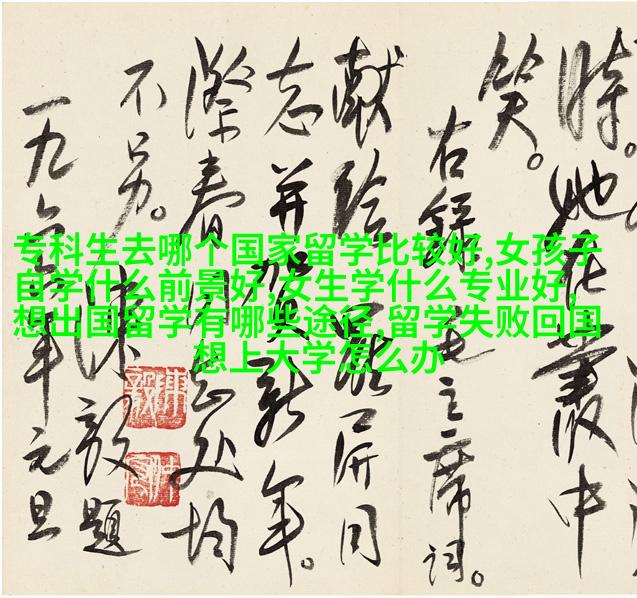 時。她在叢中
笑。
右録毛主席词。
献给
同
志并贺新年。
際春同志处均
不另。
陈毅题
一九六年元旦
陳毅
专科生去哪个国家留学比较好,女孩子
自学什么前景好,女生学什么专业好,
想出国留学有哪些途径,留学失败回国
想上大学怎么办